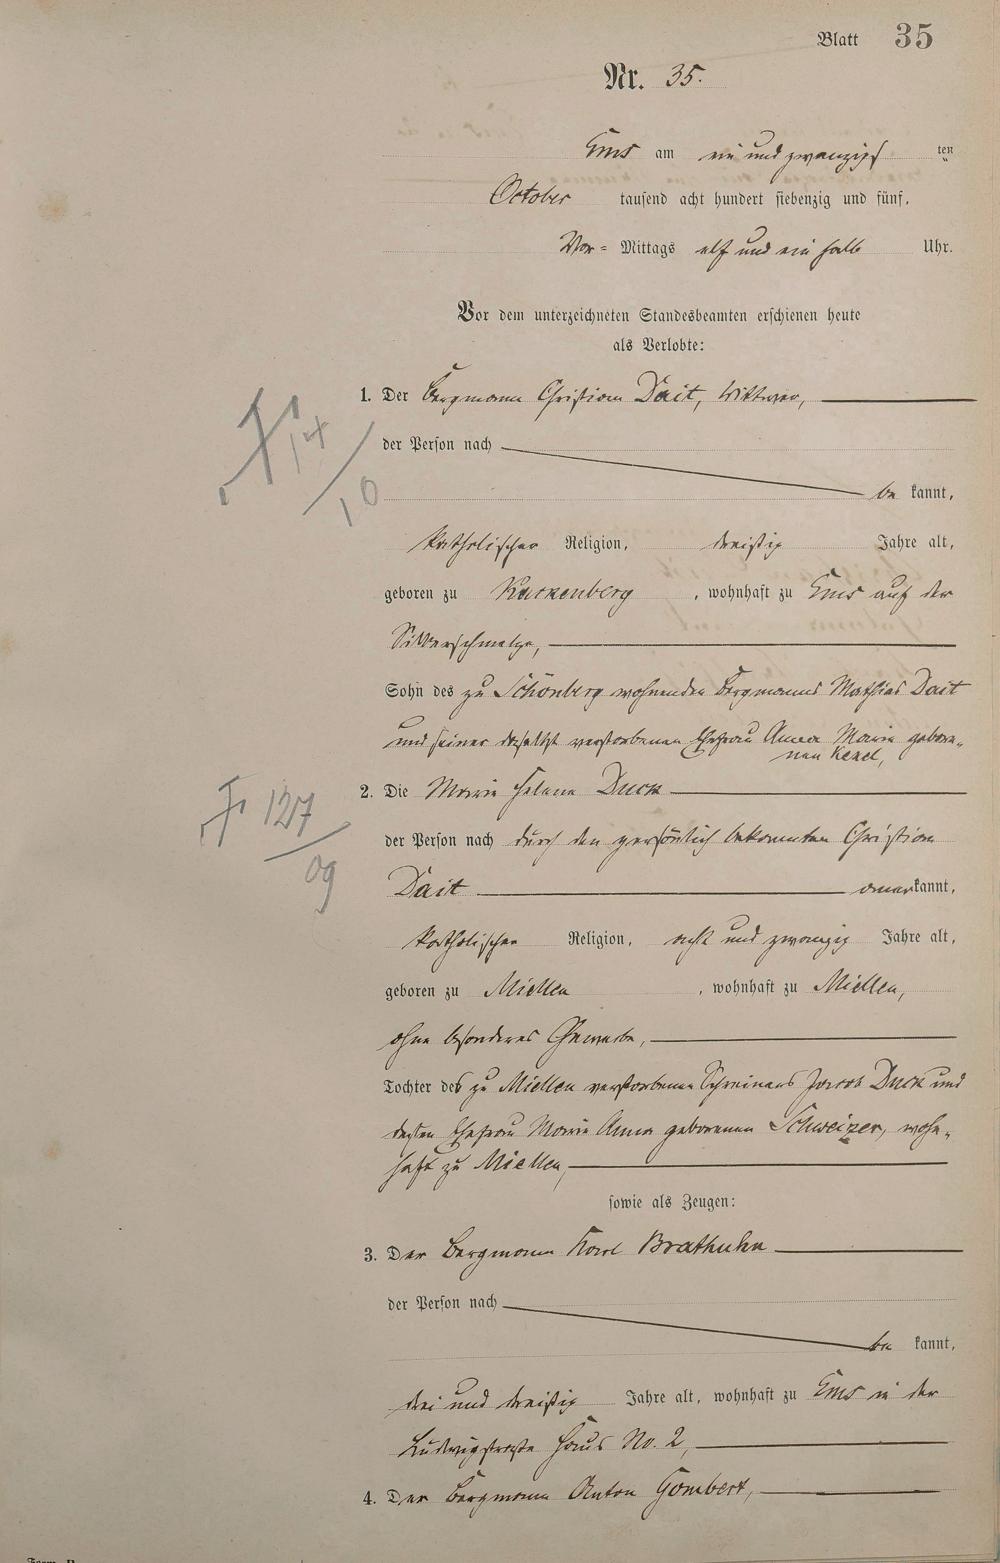 Blatt 35
Nr. 35.
Ems am ein und zwanzigs ten
October tausend acht hundert siebenzig und fünf,
Vor= Mittags elf und ein halb Uhr.
Vor dem unterzeichneten Standesbeamten erschienen heute
als Verlobte:
1. Der Bergmann Christian Dait, Wittwer,
der Person nach
be kannt,
katholischer Religion, dreißig Jahre alt,
geboren zu Kackenberg, wohnhaft zu Ems auf der
Silberschmelze,
Sohn des zu Schönberg wohnenden Bergmanns Mathias Dait
und seiner daselbst verstorbenen Ehefrau Anna Maria gebore-
nen Kexel,
2. Die Maria Helena Duck
der Person nach durch den persönlich bekannten Christian
Dait anerkannt,
katholischer Religion, acht und zwanzig Jahre alt,
geboren zu Miellen, wohnhaft zu Miellen,
ohne besonderes Gewerbe,
Tochter des zu Miellen verstorbenen Schreiners Jacob Duck und
dessen Ehefrau Maria Anna geborenen Schweizer, wohn-
haft zu Miellen,
sowie als Zeugen:
3. Der Bergmann Karl Brathuhn
der Person nach
be kannt,
drei und dreißig Jahre alt, wohnhaft zu Ems in der
Ludwigstraße Haus No. 2,
4. Der Bergmann Anton Gombert,
14
10
127
09